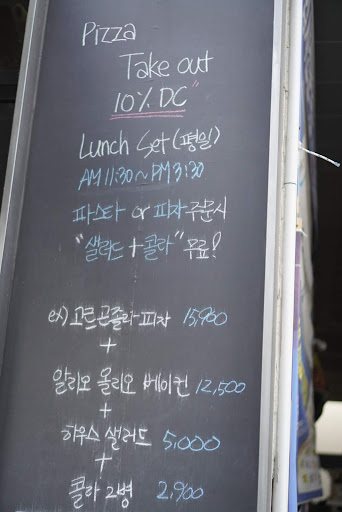 Pizza
Take out
10% DC"
Lunch Set (평일)
AM 11:30 ~ PM 3:30
파스타 or 피자 주문시
"샐러드 + 콜라" 무료!
ex) 고르곤졸라 피자 15,900
+
알리오 올리오 베이컨 12,500
+
하우스 샐러드 5,000
+
콜라 2병 2,900